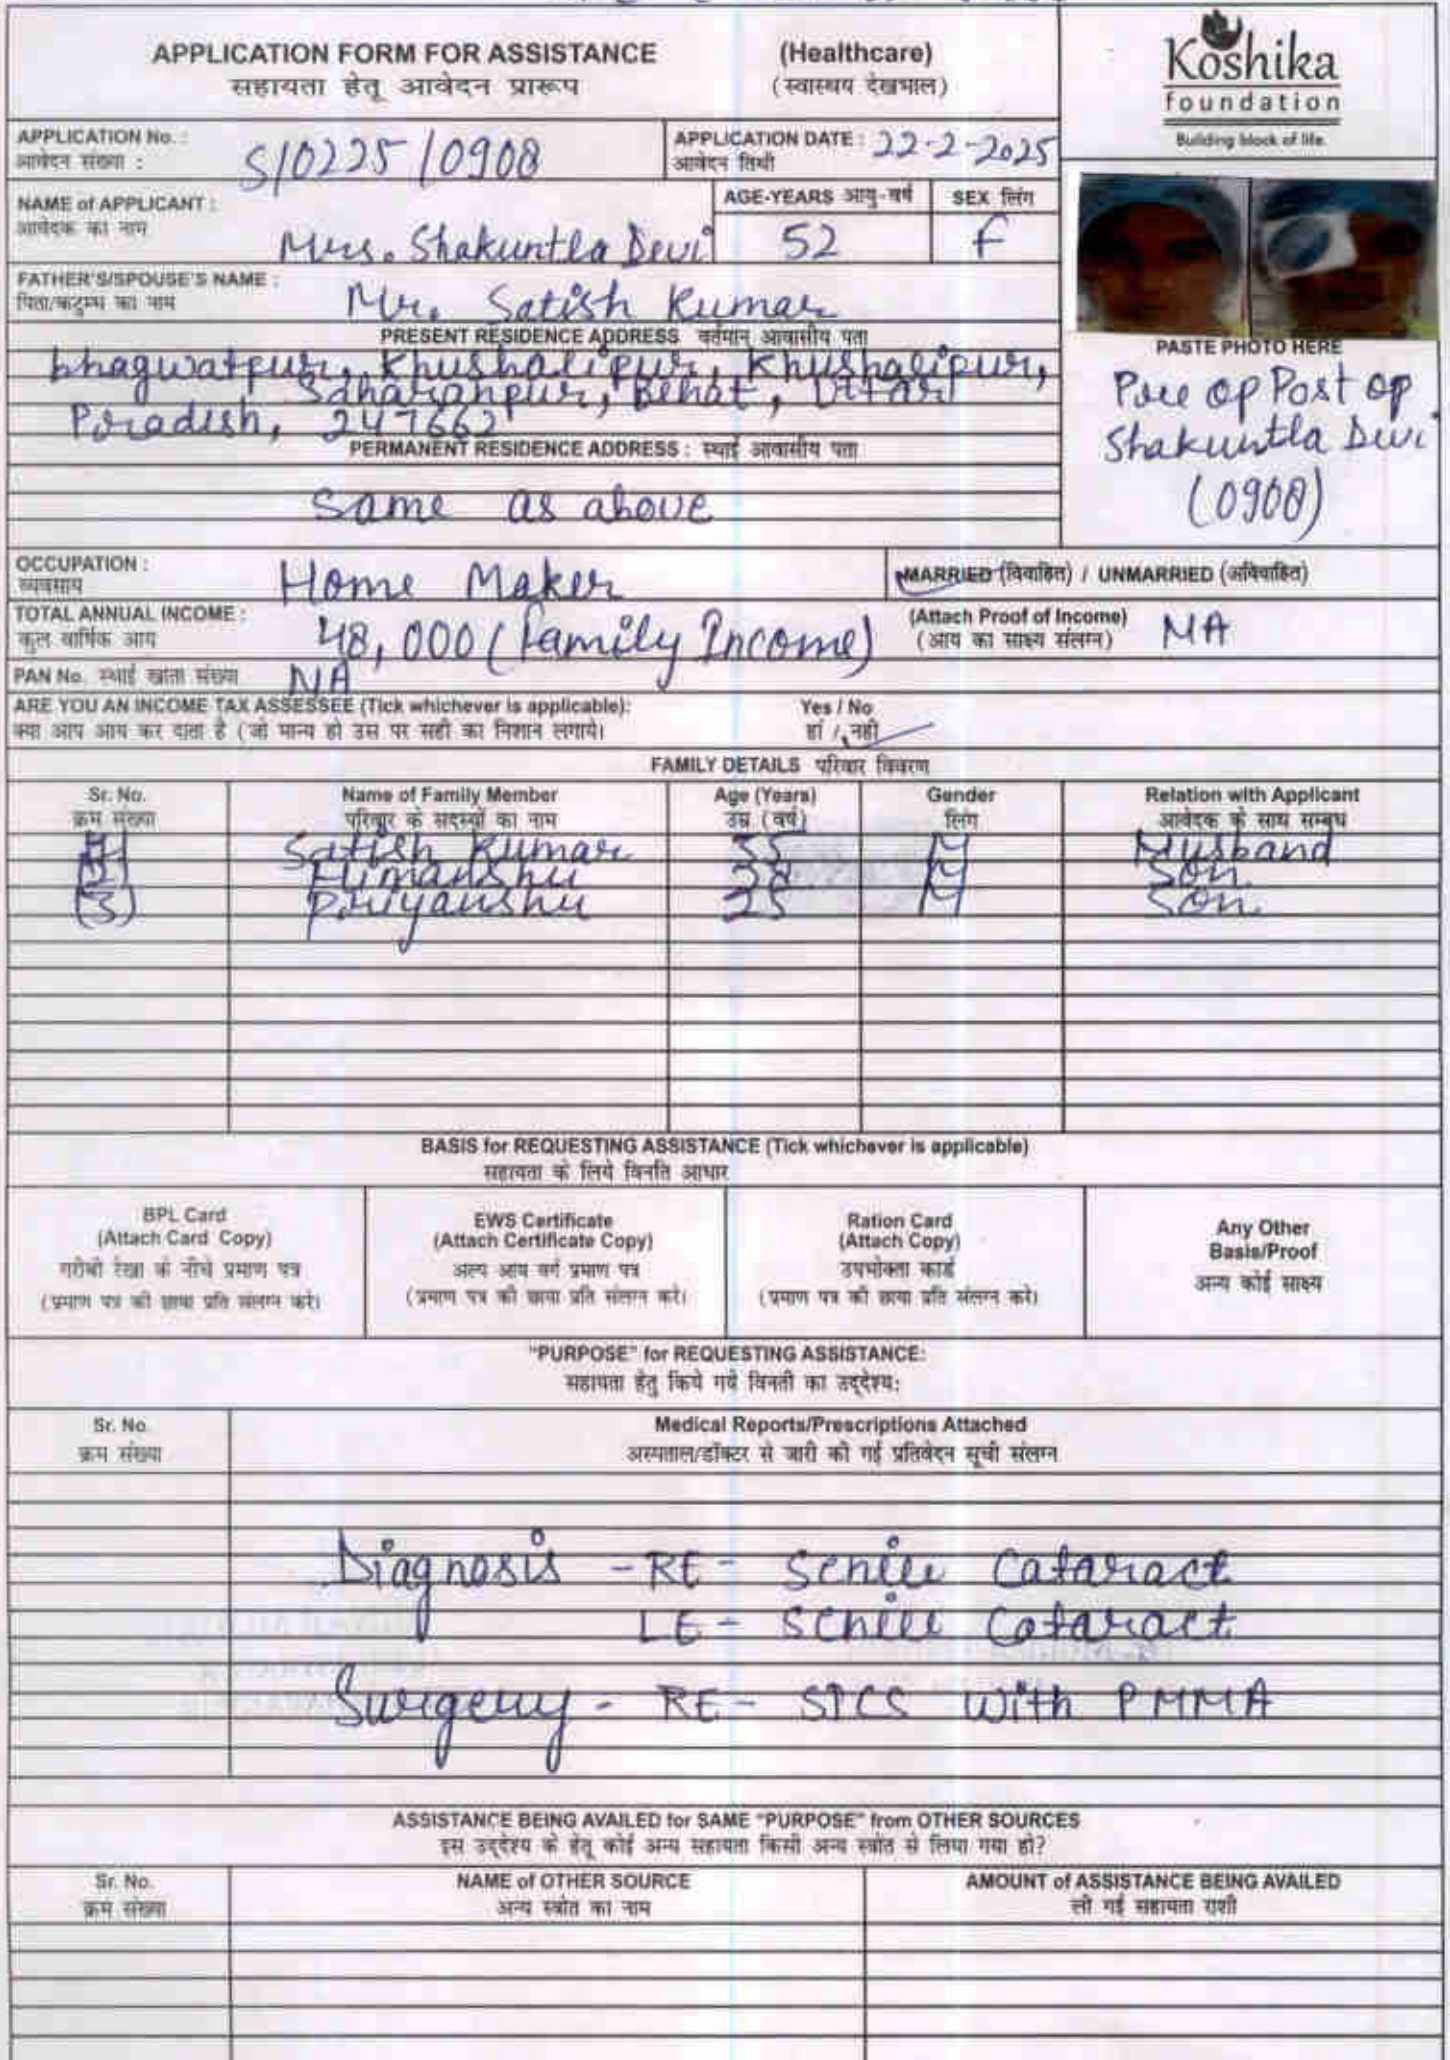 APPLICATION FORM FOR ASSISTANCE (Healthcare)
सहायता हेतू आवेदन प्रारूप (स्वास्थय देखभाल)
Koshika
foundation
Building block of life.
APPLICATION No. : S/0225/0908 APPLICATION DATE : 22-2-2025
आवेदन संख्या : आवेदन तिथी
NAME of APPLICANT : Mrs. Shakuntla Devi AGE-YEARS आयु-वर्ष 52 SEX लिंग F
आवेदक का नाम
FATHER'S/SPOUSE'S NAME : Mr. Satish Kumar
पिता/कटुम्ब का नाम
PRESENT RESIDENCE ADDRESS वर्तमान आवासीय पता
bhagwatpur, Khushalipur, Khushalipur,
Saharanpur, Behat, Uttar
Pradesh, 247662
PERMANENT RESIDENCE ADDRESS : स्थाई आवासीय पता
Same as above
PASTE PHOTO HERE
Pre op Post op
Shakuntla Devi
(0908)
OCCUPATION : Home Maker MARRIED (विवाहित) / UNMARRIED (अविवाहित)
व्यवसाय
TOTAL ANNUAL INCOME : 48,000 (Family Income) (Attach Proof of Income) NA
कुल वार्षिक आय (आय का साक्ष्य संलग्न)
PAN No. स्थाई खाता संख्या NA
ARE YOU AN INCOME TAX ASSESSEE (Tick whichever is applicable): Yes / No
क्या आप आय कर दाता है (जो मान्य हो उस पर सही का निशान लगाये। हां / नही
FAMILY DETAILS परिवार विवरण
Sr. No. Name of Family Member Age (Years) Gender Relation with Applicant
क्रम संख्या परिवार के सदस्यों का नाम उम्र (वर्ष) लिंग आवेदक के साथ सम्बंध
(1) Satish Kumar 55 M Husband
(2) Himanshu 28 M Son
(3) Priyanshu 25 M Son
BASIS for REQUESTING ASSISTANCE (Tick whichever is applicable)
सहायता के लिये विनति आधार
BPL Card
(Attach Card Copy)
गरीबी रेखा के नीचे प्रमाण पत्र
(प्रमाण पत्र की छाया प्रति संलग्न करे।
EWS Certificate
(Attach Certificate Copy)
अल्प आय वर्ग प्रमाण पत्र
(प्रमाण पत्र की छाया प्रति संलग्न करे।
Ration Card
(Attach Copy)
उपभोक्ता कार्ड
(प्रमाण पत्र की छाया प्रति संलग्न करे।
Any Other
Basis/Proof
अन्य कोई साक्ष्य
"PURPOSE" for REQUESTING ASSISTANCE:
सहायता हेतु किये गये विनती का उद्देश्य:
Sr. No. Medical Reports/Prescriptions Attached
क्रम संख्या अस्पताल/डॉक्टर से जारी की गई प्रतिवेदन सूची संलग्न
Diagnosis - RE - Senile Cataract
LE - Senile Cataract
Surgery - RE - SICS with PMMA
ASSISTANCE BEING AVAILED for SAME "PURPOSE" from OTHER SOURCES
इस उद्देश्य के हेतू कोई अन्य सहायता किसी अन्य स्त्रोत से लिया गया हो?
Sr. No. NAME of OTHER SOURCE AMOUNT of ASSISTANCE BEING AVAILED
क्रम संख्या अन्य स्त्रोत का नाम ली गई सहायता राशी